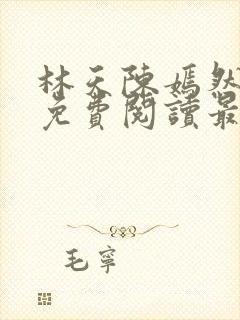 林天陳嫣然
免費閱讀最
毛寧